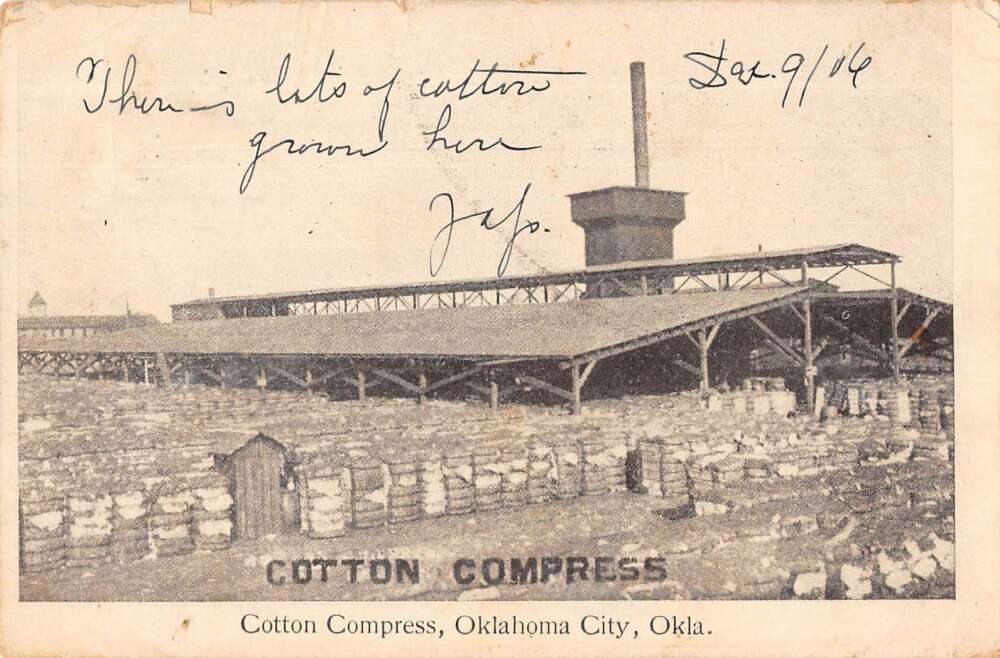 There is lots of cotton
grown here
Dec. 9/06
COTTON COMPRESS
Cotton Compress, Oklahoma City, Okla.